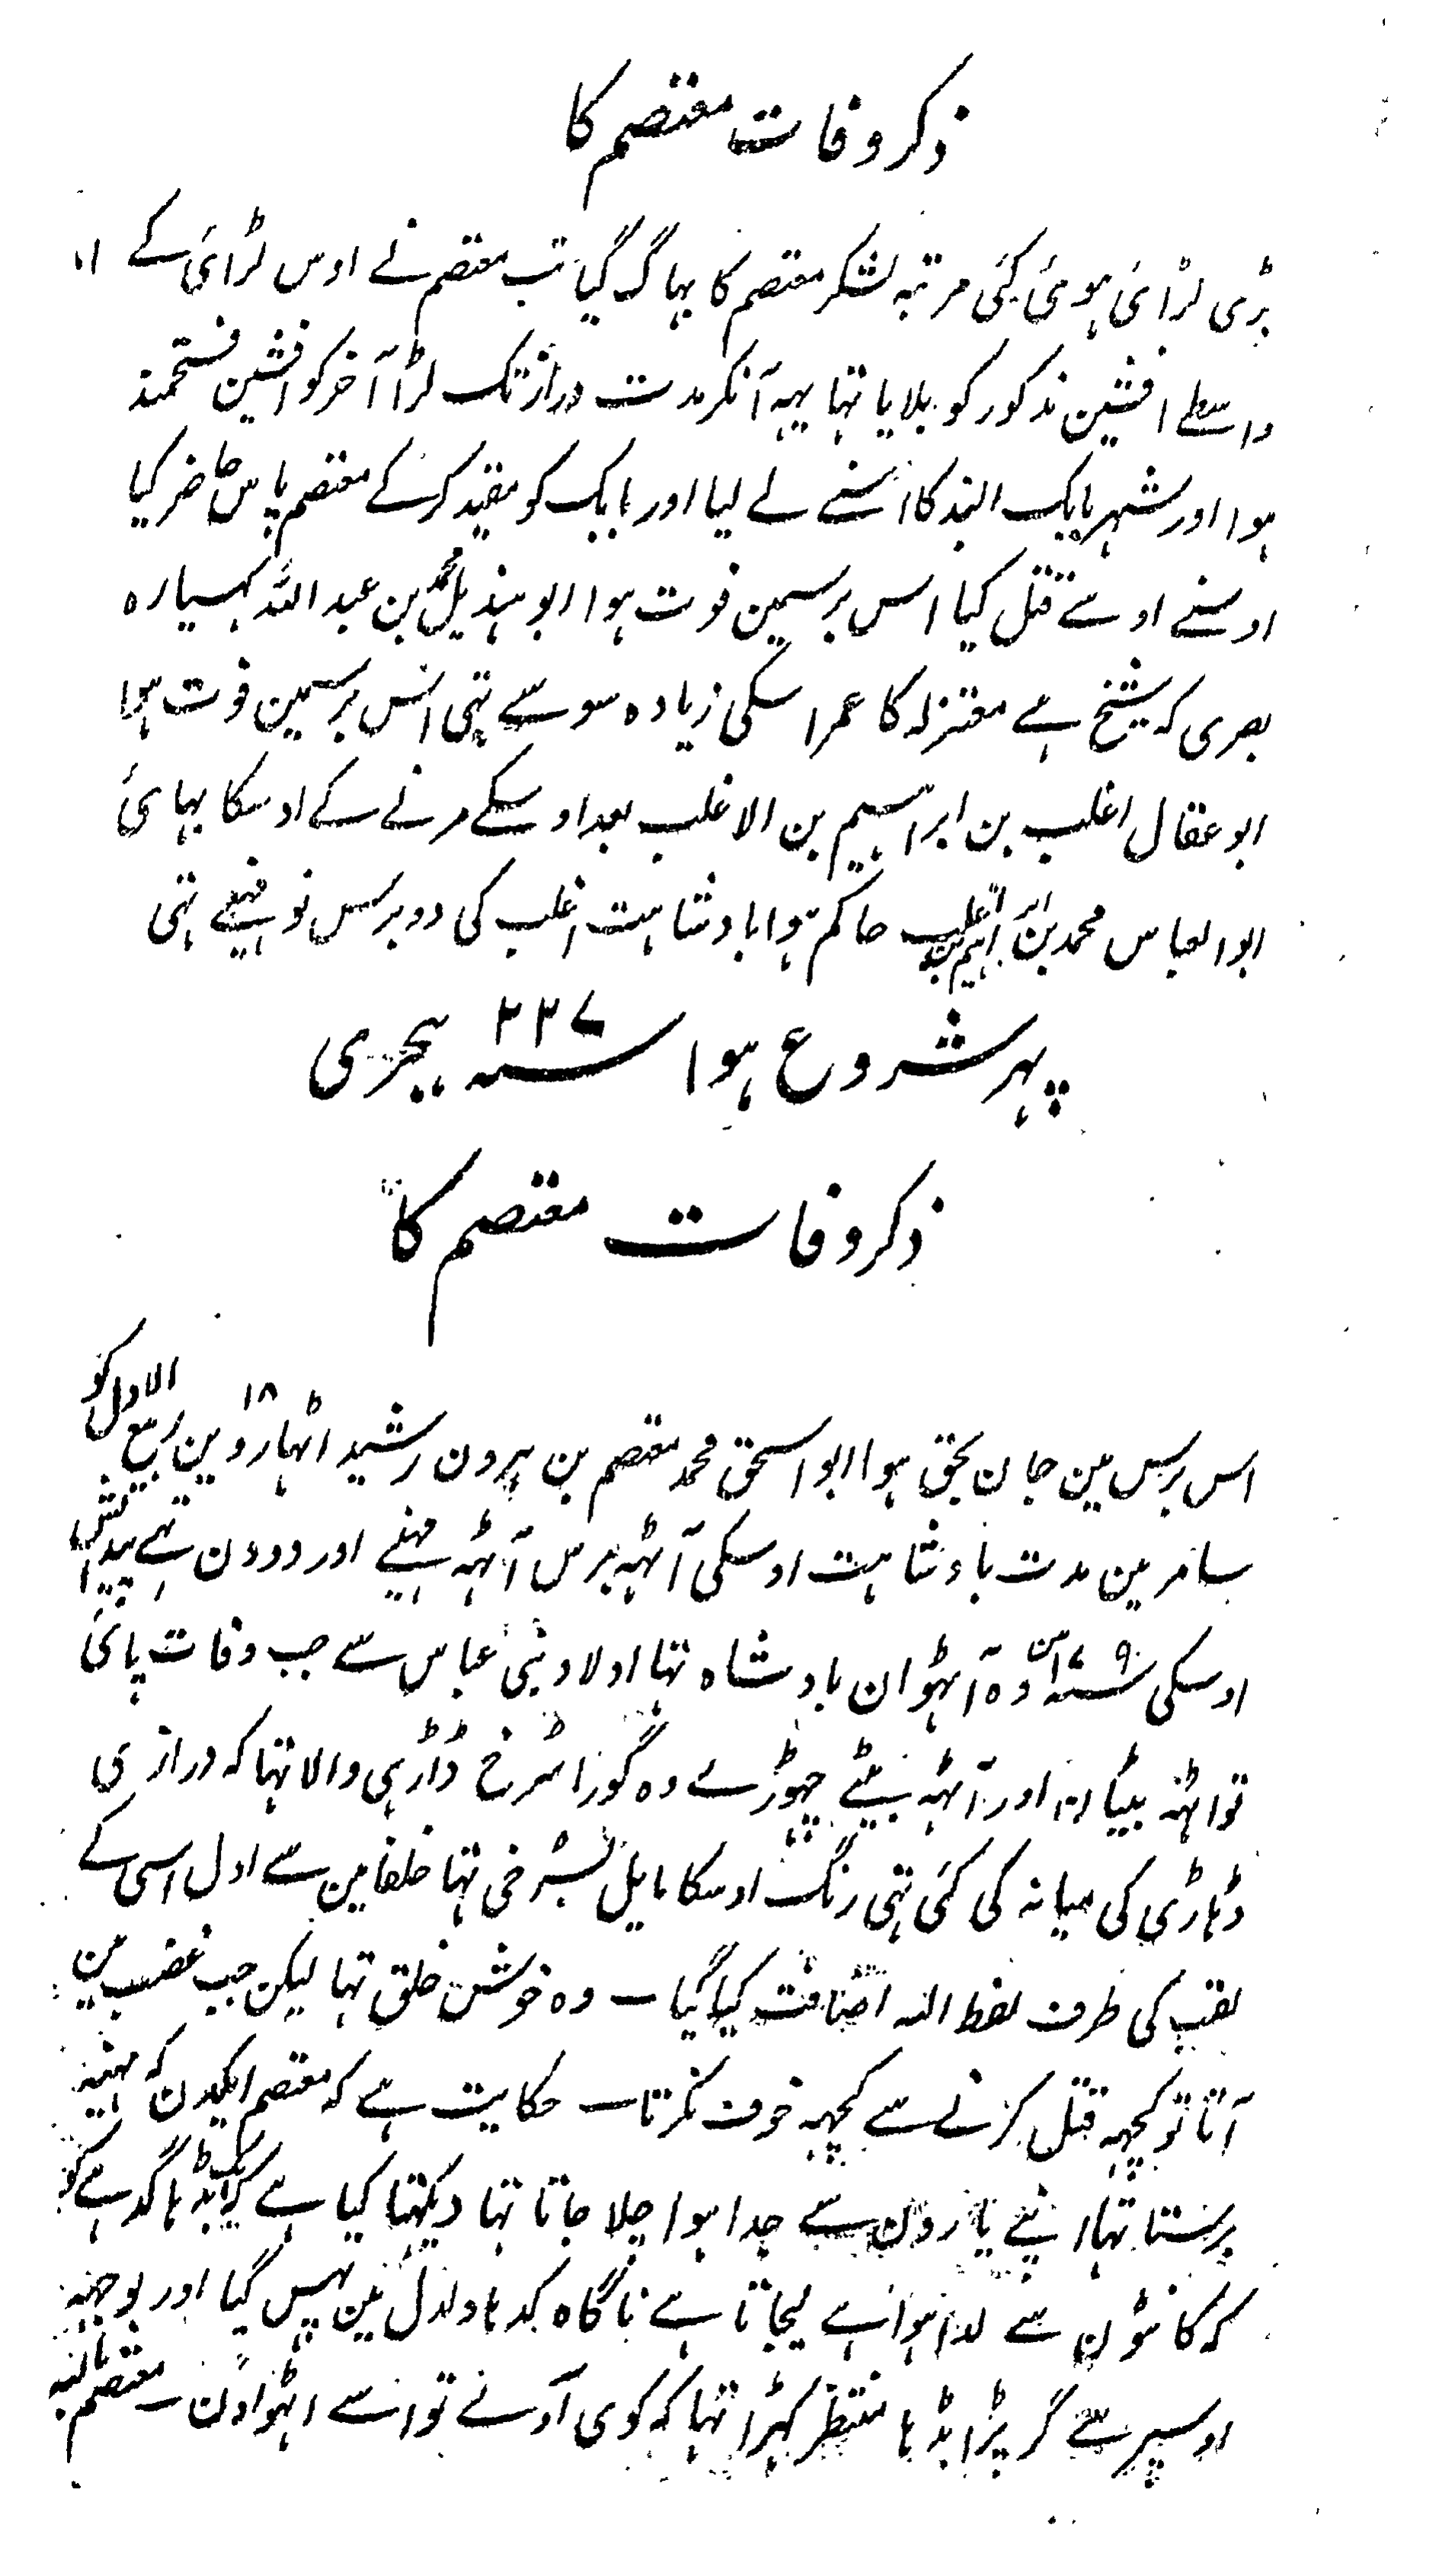 ذکر وفات معتصم کا
بڑی لڑائی ہوئی کئی مرتبہ لشکر معتصم کا بہاگ گیا تب معتصم نے اوس لڑائی کے
واسطے افشین مذکور کو بلایا تہا یہہ آنکر مدت دراز تک لڑا آخر کو افشین فتحمند
ہوا اور شہر بابک البذ کا اسنے لے لیا اور بابک کو مقید کر کے معتصم پاس حاضر کیا
اوسنے اوسے قتل کیا اس برسمین فوت ہوا ابو ہذیل محمد بن عبد اللہ
بصری کہ شیخ ہے معتزلہ کا عمر اسکی زیادہ سو سے تہی اس برسمین فوت ہوا
ابو عقال اغلب بن ابراہیم بن الاغلب بعد اوسکے مرنے کے اوسکا بہائی
ابو العباس محمد بن ابراہیم بن اغلب حاکم ہوا بادشاہت اغلب کی دو برس نو مہینے تہی
پہر شروع ہوا سنہ ۲۲۷ ہجری
ذکر وفات معتصم کا
اس برس مین جان بحق ہوا ابو اسحق محمد معتصم بن ہرون رشید اٹہاروین ۱۸ ربیع الاول کو
سامر مین مدت بادشاہت اوسکی آٹہہ برس آٹہہ مہینے اور دو دن ہے پیدائش
اوسکی سنہ ۱۷۹ مین وہ آٹہوان بادشاہ تہا اولاد بنی عباس سے جب وفات پائی
تو اٹہہ بیٹیان اور آٹہہ بیٹے چہوڑے وہ گورا سرخ ڈاڑہی والا تہا کہ درازی
ڈہاڑی کی میانہ کی گئی تہی رنگ اوسکا مایل بسرخی تہا خلفا مین سے اول اسی کے
لقب کی طرف لفظ اللہ اضافت کیا گیا ۔ وہ خوش خلق تہا لیکن جب غضب مین
آتا تو کچہہ قتل کرنے سے کچہہ خوف نکرتا ۔ حکایت ہے کہ معتصم ایکدن کہ مہینہ
برستا تہا اپنے یارون سے جدا ہوا چلا جاتا تہا دیکہتا کیا ہے کہ ایک بڈہا گدہے کو
کہ کانٹون سے لدا ہوا ہے لیجاتا ہے ناگاہ گدہا دلدل مین پہس گیا اور بوجہہ
اوسپر سے گر پڑا بڈہا منتظر کہڑا تہا کہ کوی آوے تو اسے اٹہوادن ۔ معتصم باللہ